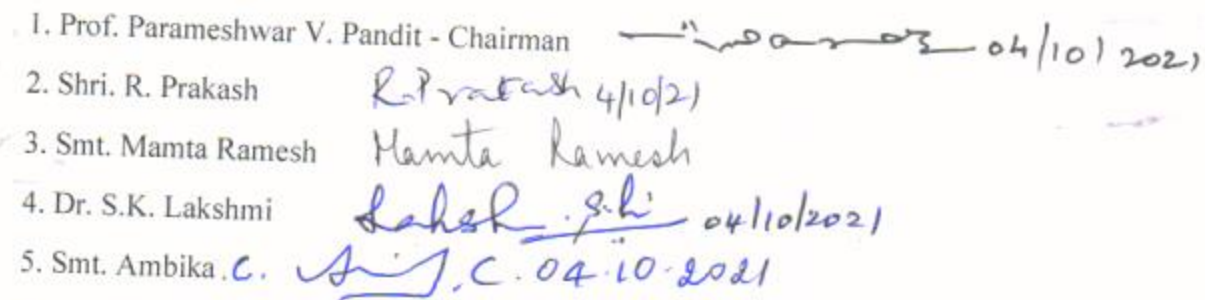 1. Prof. Parameshwar V. Pandit - Chairman 04/10/2021
2. Shri. R. Prakash R.Prakash 4/10/21
3. Smt. Mamta Ramesh Mamta Ramesh
4. Dr. S.K. Lakshmi Lakshmi S.K 04/10/2021
5. Smt. Ambika.C. .C. 04.10.2021